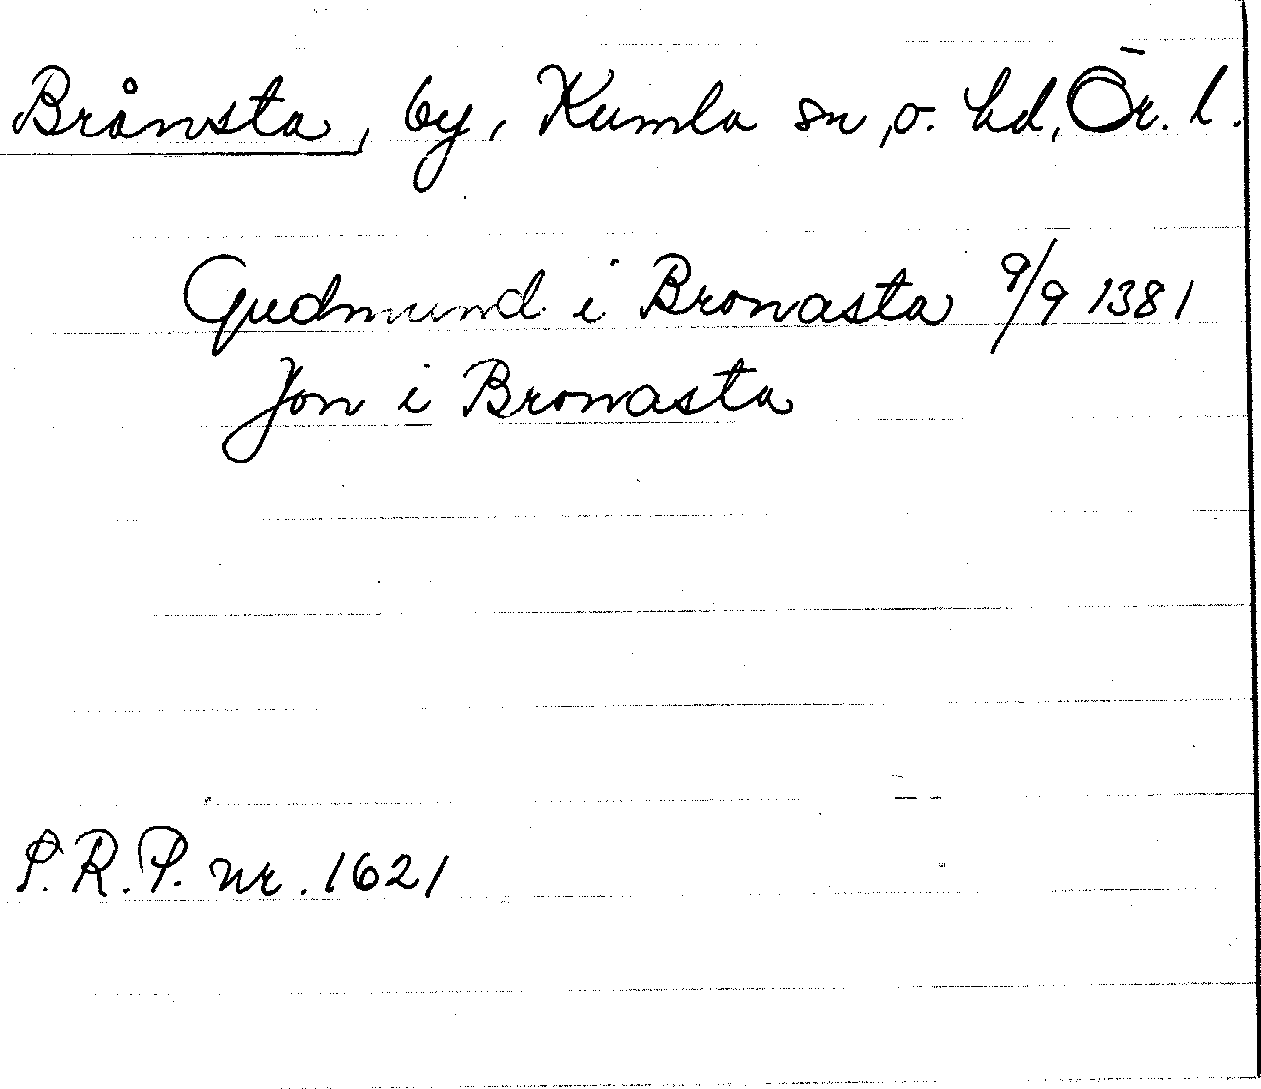 Brånsta, by, Kumla sn, o. hd, Ör. l.
Gudmund i Bronasta 9/9 1381
Jon i Bronasta
S.R.P. nr. 1621